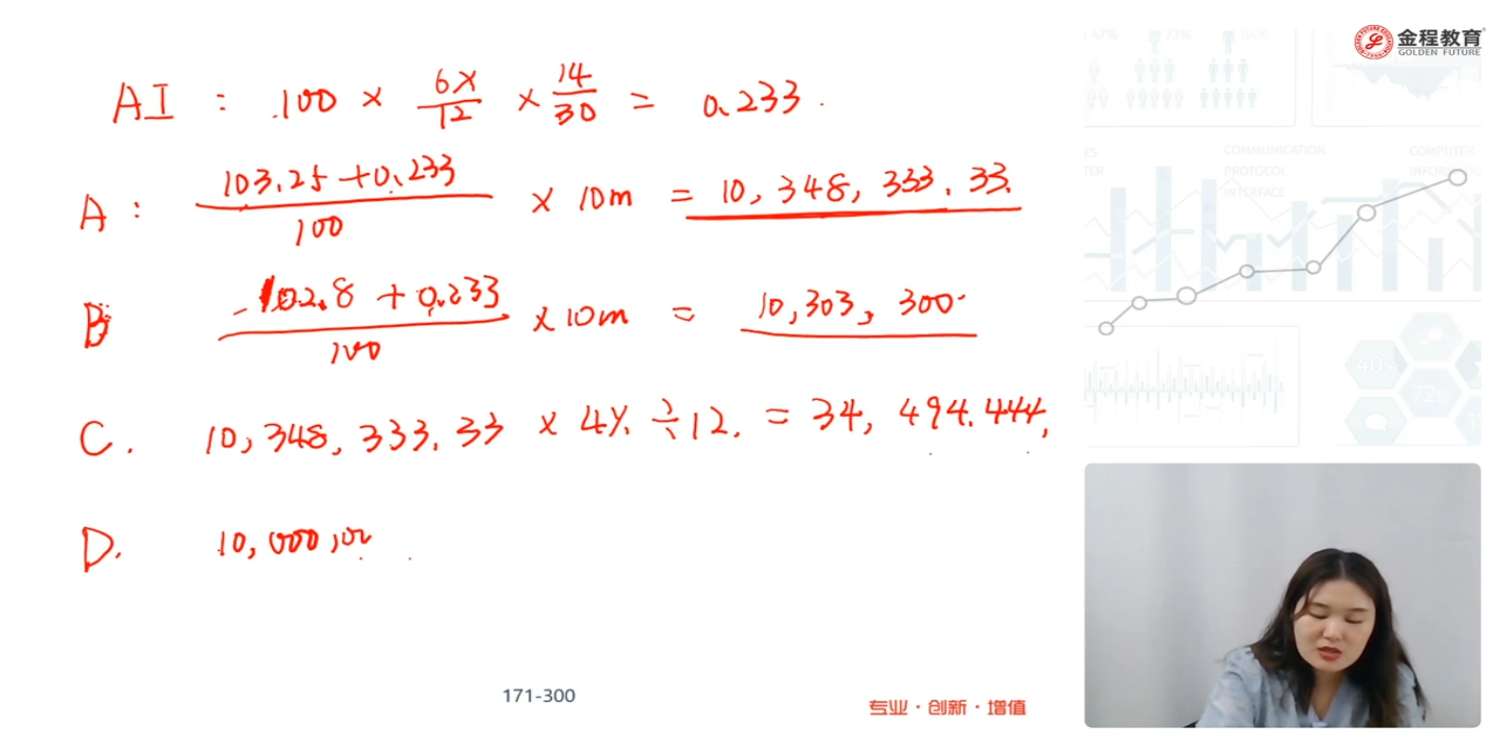 金程教育
GOLDEN FUTURE
AI : 100 × 6%/12 × 14/30 = 0.233.
A : (103.25+0.233)/100 × 10m = 10,348,333.33.
B (102.8+0.233)/100 × 10m = 10,303,300.
C. 10,348,333.33 × 4% ÷ 12. = 34,494.444,
D. 10,000,00
COMMUNICATION
PROTOCOL
INTERFACE
COMPUTER
171-300
专业·创新·增值